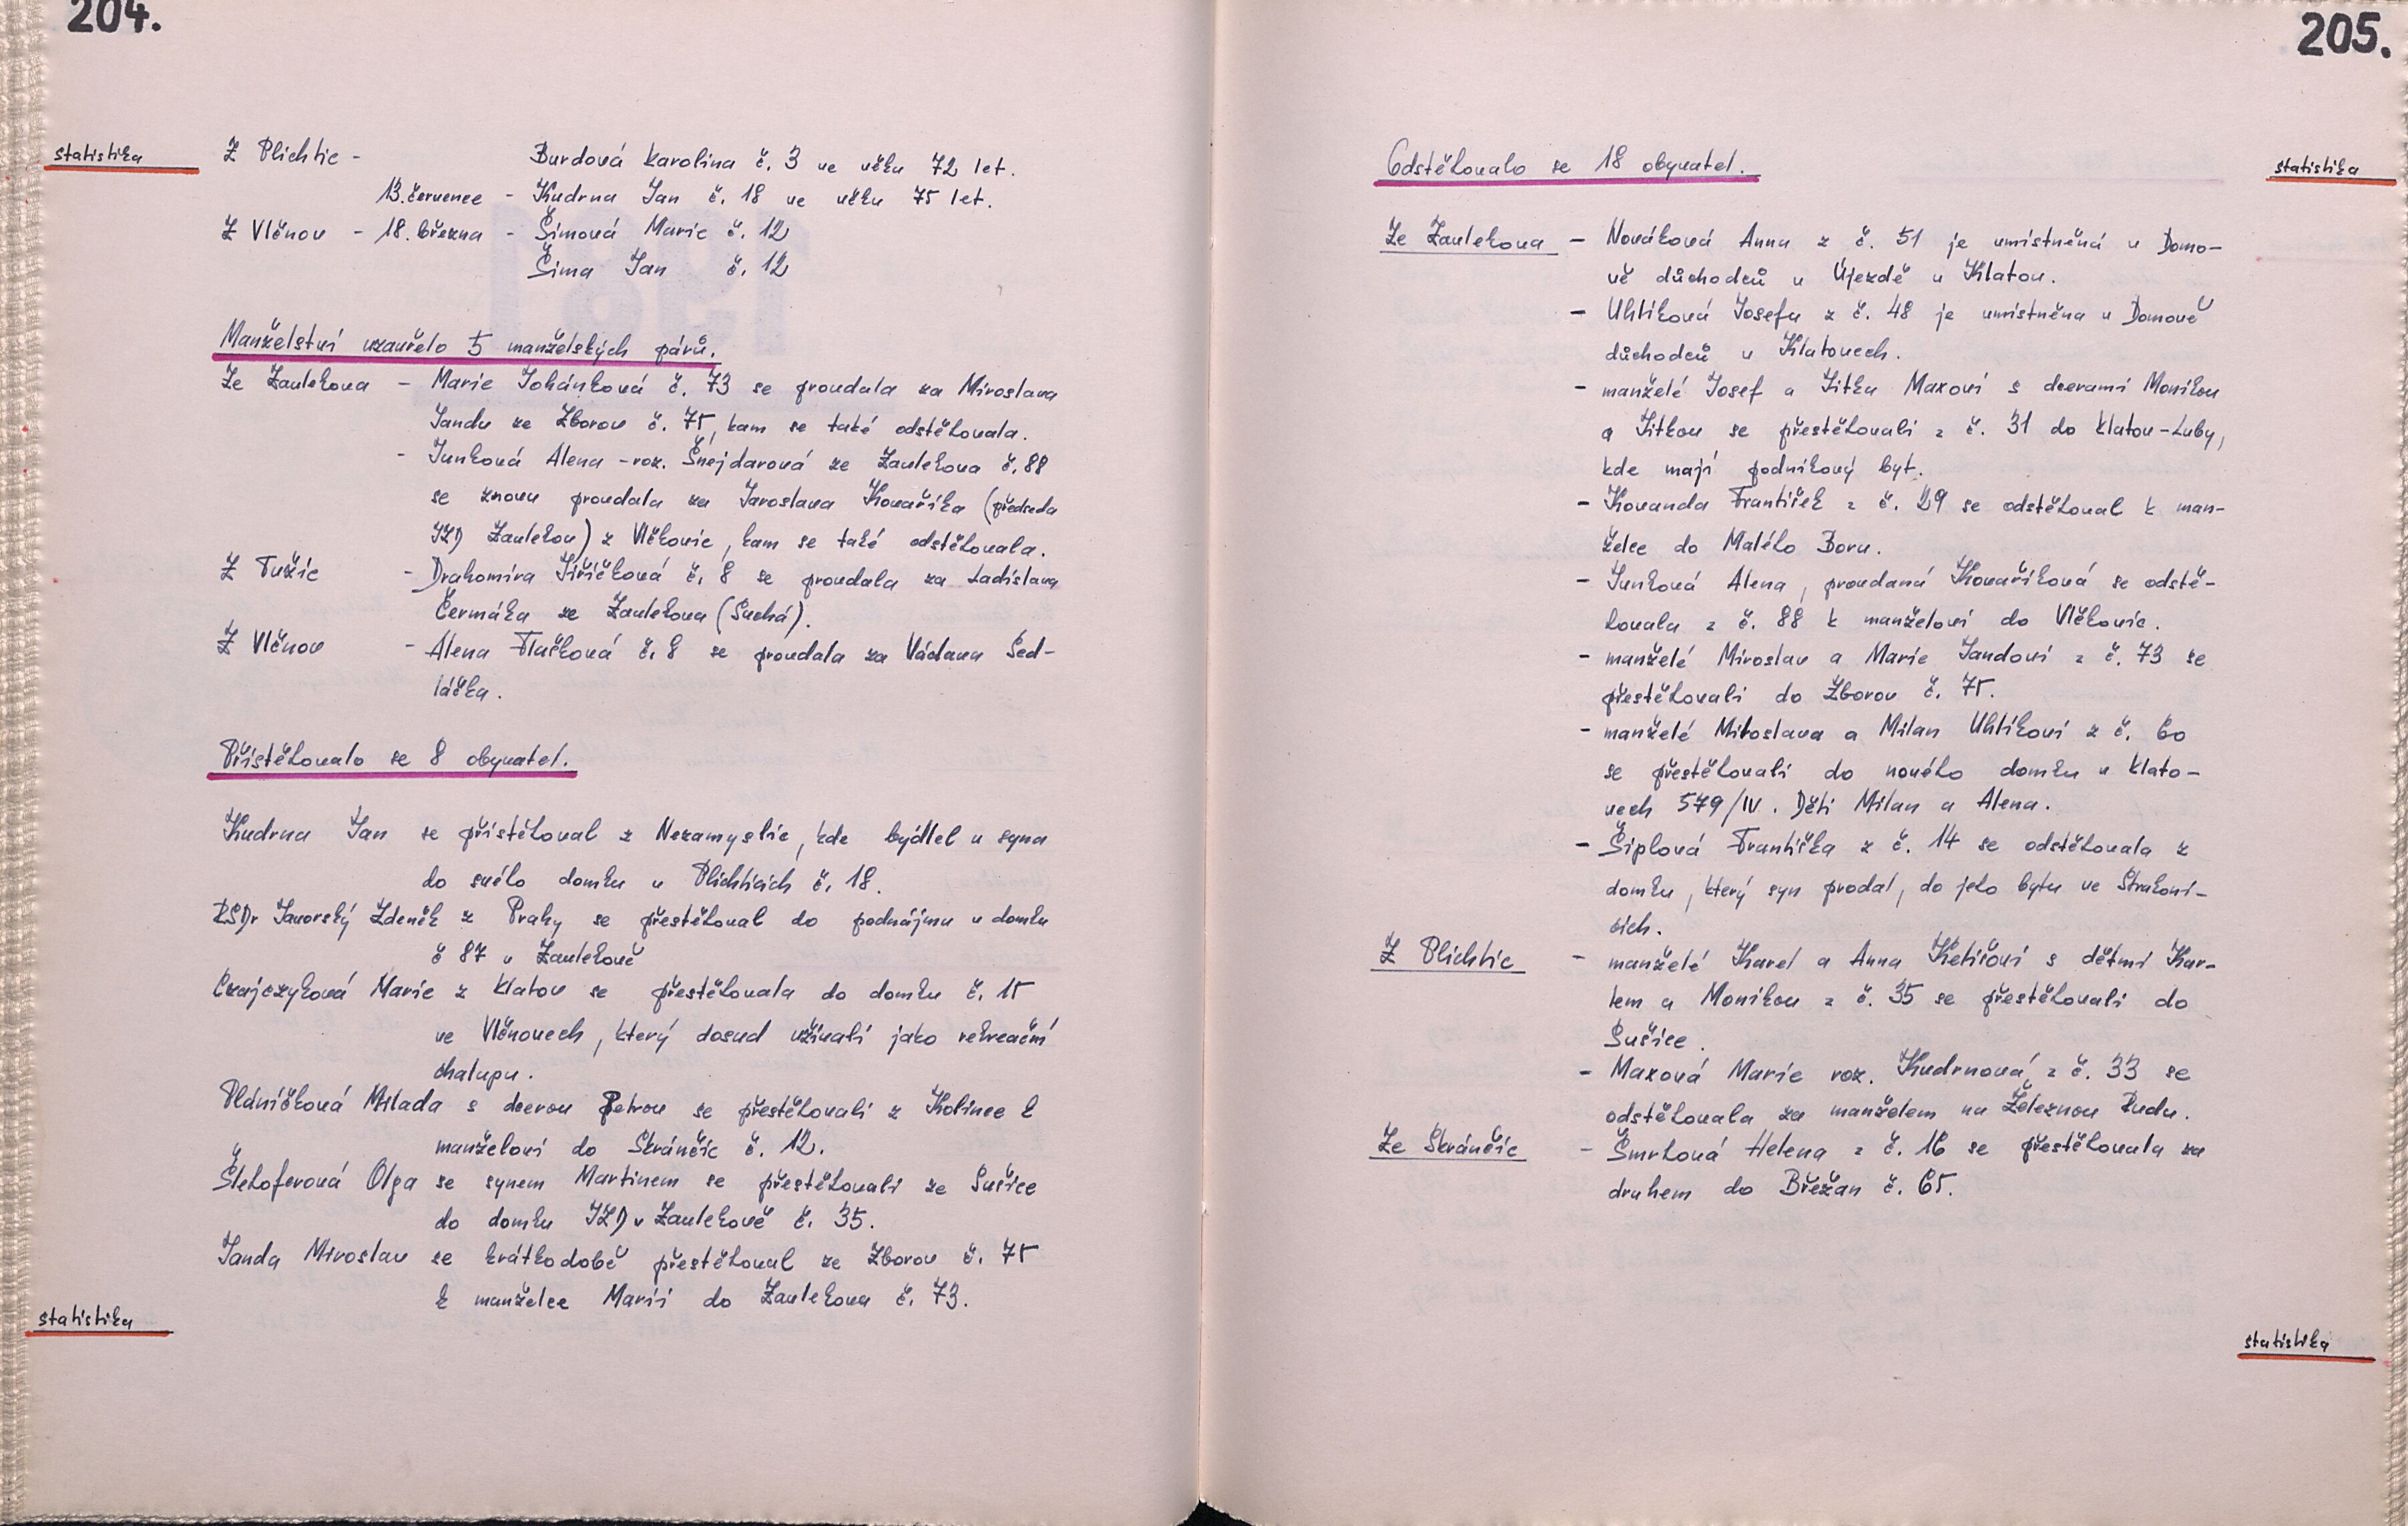 204.
statistika
Z Plichtic - Burdová Karolina č. 3 ve věku 72 let.
13. červenec - Kudrna Jan č. 18 ve věku 75 let.
Z Vlčnov - 18. března - Šimová Marie č. 12
Šima Jan č. 12
Manželství uzavřelo 5 manželských párů.
Ze Zavlekova - Marie Johánková č. 73 se provdala za Miroslava
Jandu ze Zborov č. 75, kam se také odstěhovala.
- Junková Alena - roz. Šnejdarová ze Zavlekova č. 88
se znovu provdala za Jaroslava Kovaříka (předseda
JZD Zavlekov) z Vlčkovic, kam se také odstěhovala.
Z Tužic - Drahomíra Jiřičková č. 8 se provdala za Ladislava
Čermáka ze Zavlekova (Suchá).
Z Vlčnov - Alena Tlačková č. 8 se provdala za Václava Sed-
láčka.
Přistěhovalo se 8 obyvatel.
Kudrna Jan se přistěhoval z Nezamyslic, kde bydlel u syna
do svého domku v Plichticích č. 18.
RSDr Javorský Zdeněk z Prahy se přestěhoval do podnájmu v domku
č 87 v Zavlekově
Czajczyková Marie z Klatov se přestěhovala do domku č. 15
ve Vlčnovech, který dosud užívali jako rekreační
chalupu.
Pldníčková Milada s dcerou Petrou se přestěhovali z Kolince k
manželovi do Skránčic č. 12.
Štěhoferová Olga se synem Martinem se přestěhovali ze Sušice
do domku JZD v Zavlekově č. 35.
Janda Miroslav se krátkodobě přestěhoval ze Zborov č. 75
k manželce Marii do Zavlekova č. 73.
statistika
205.
statistika
Odstěhovalo se 18 obyvatel.
Ze Zavlekova - Nováková Anna z č. 51 je umistněná v Domo-
vě důchodců v Újezdě u Klatov.
- Uhlíková Josefa z č. 48 je umistněna v Domově
důchodců v Klatovech.
- manželé Josef a Jitka Maxovi s dcerami Monikou
a Jitkou se přestěhovali z č. 31 do Klatov-Luby,
kde mají podnikový byt.
- Kovanda František z č. 29 se odstěhoval k man-
želce do Malého Boru.
- Junková Alena, provdaná Kovaříková se odstě-
hovala z č. 88 k manželovi do Vlčkovic.
- manželé Miroslav a Marie Jandovi z č. 73 se
přestěhovali do Zborov č. 75.
- manželé Miloslava a Milan Uhlíkovi z č. 60
se přestěhovali do nového domku v Klato-
vech 579/IV. Děti Milan a Alena.
- Šiplová Františka z č. 14 se odstěhovala z
domku, který syn prodal, do jeho bytu ve Strakoni-
cích.
Z Plichtic - manželé Karel a Anna Ketišovi s dětmi Kar-
lem a Monikou z č. 35 se přestěhovali do
Sušice.
- Maxová Marie roz. Kudrnová z č. 33 se
odstěhovala za manželem na Železnou Rudu.
Ze Skránčic - Šmrhová Helena z č. 16 se přestěhovala za
druhem do Břežan č. 65.
statistika